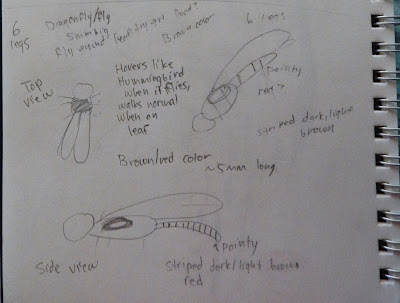 6 legs
Dragonfly/fly
Fly around leaf
Brown color
6 legs
Top view
Hovers like
Hummingbird
when it flies,
walks normal
when on
leaf
pointy
striped dark/light
brown
Brown/red color
~5mm long
pointy
Side view
Striped dark/light brown
red